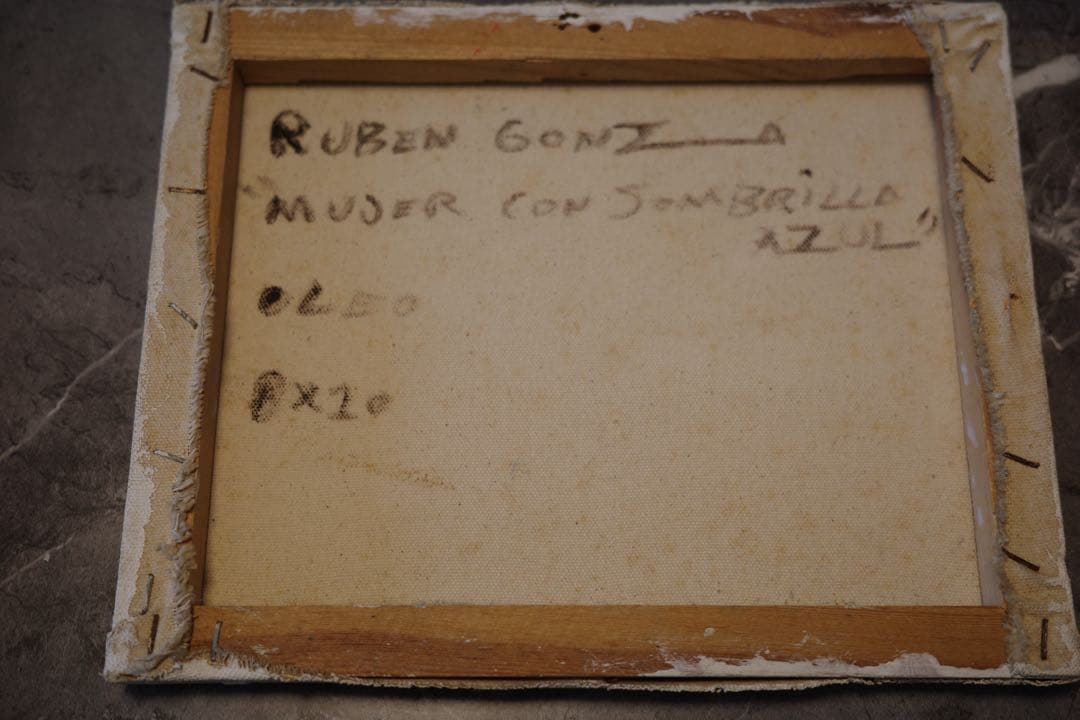 RUBEN GONZ A
"MUJER CON SOMBRILLA
AZUL"
OLEO
8X10